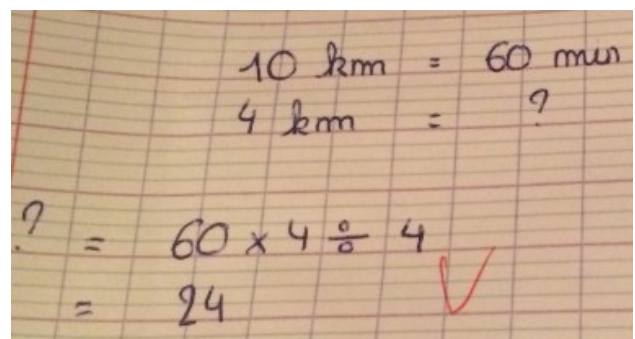 10 km = 60 min
4 km = ?
? = 60 × 4 ÷ 4
= 24